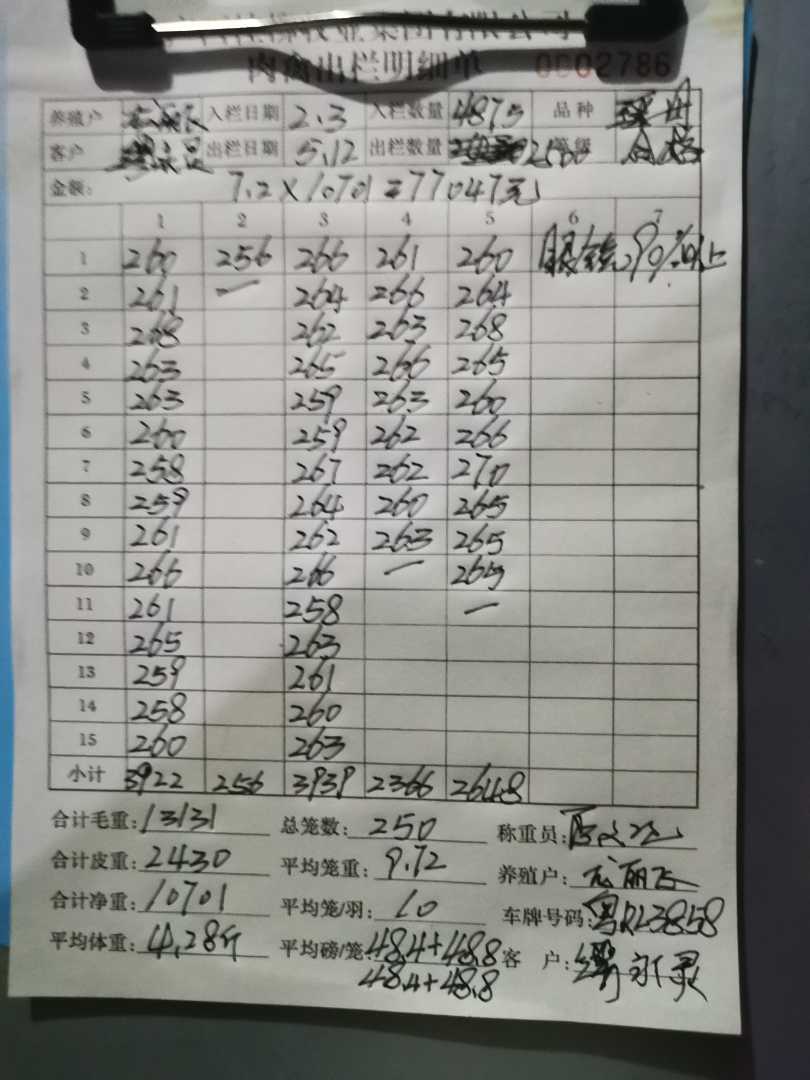 肉禽出栏明细单 0002786
养殖户 入栏日期 2.3 入栏数量 4875 品种
客户 出栏日期 5.12 出栏数量 2500 等级 合格
金额: 7.2×10701=77047元
1 2 3 4 5 6 7
1 260 256 266 261 260 眼镜90%以上
2 261 — 264 266 264
3 268 262 263 268
4 263 265 266 265
5 263 259 263 260
6 260 259 262 266
7 258 267 262 270
8 259 264 260 265
9 261 262 263 265
10 266 266 — 265
11 261 258 —
12 265 263
13 259 261
14 258 260
15 260 263
小计 3922 256 3939 2366 2648
合计毛重: 13131 总笼数: 250 称重员:
合计皮重: 2430 平均笼重: 9.72 养殖户:
合计净重: 10701 平均笼/羽: 10 车牌号码: 粤R23858
平均体重: 4.28斤 平均磅/笼: 48.4+48.8 客 户:
48.4+48.8